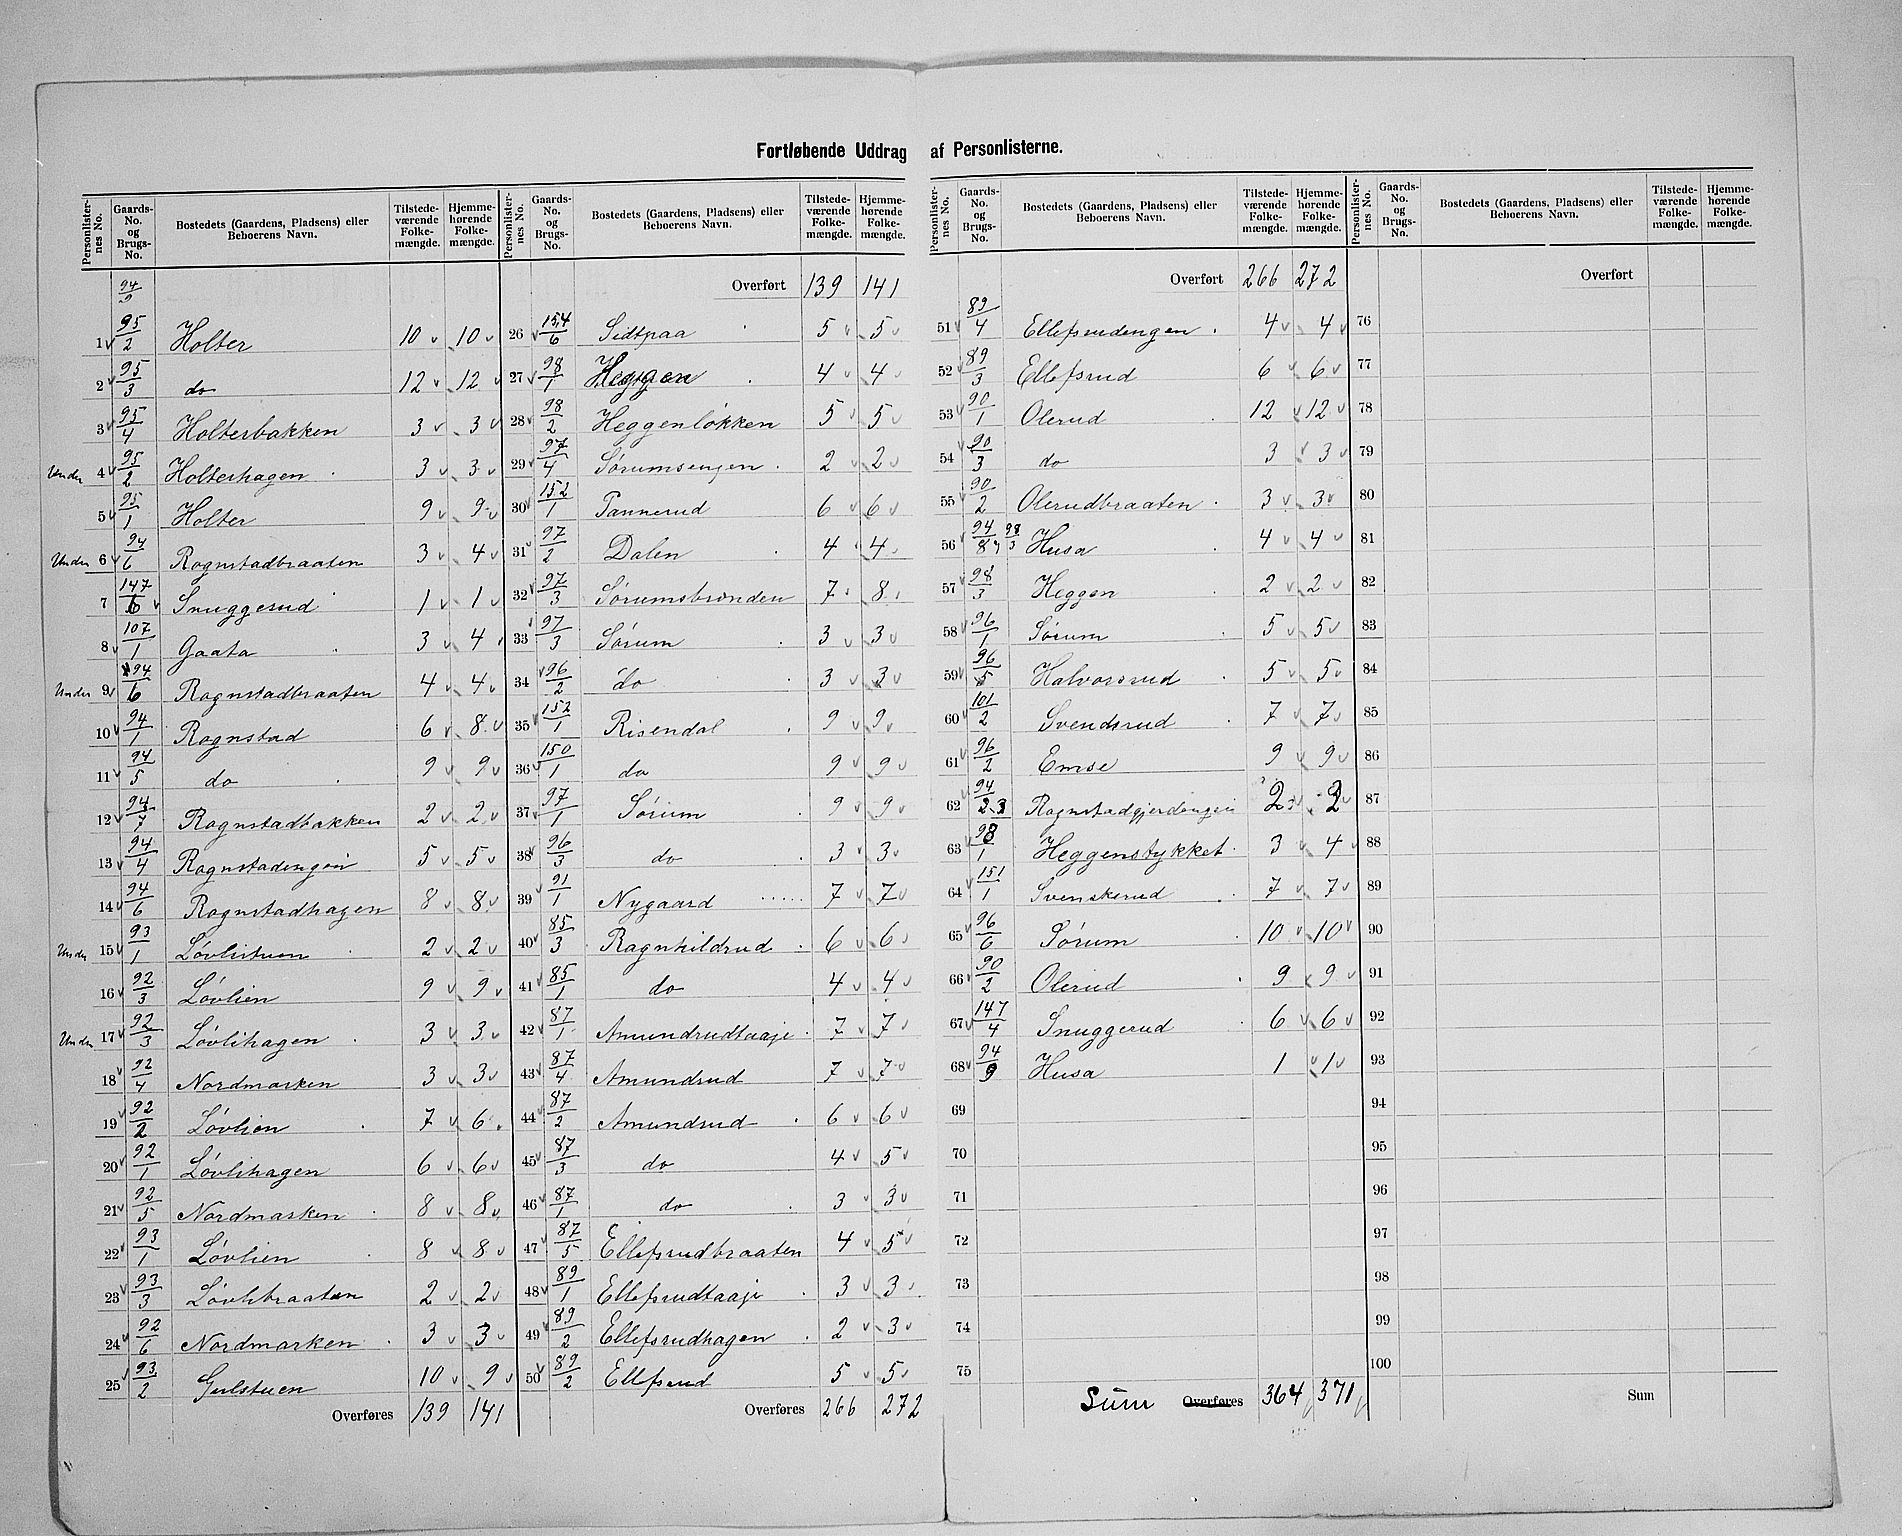 Fortløbende Uddrag af Personlisterne.
Personlisternes No. Gaards-No. og Brugs-No. Bostedets (Gaardens, Pladsens) eller Beboerens Navn. Tilstedeværende Folkemængde. Hjemmehørende Folkemængde.
94/9
1 95/2 Holter 10 10
2 95/3 do 12 12
3 95/4 Holterbakken 3 3
Under 4 95/2 Holterhagen 3 3
5 95/1 Holter 9 9
Under 6 94/6 Rognstadbraaten 3 4
7 147/6 Snuggerud 1 1
8 107/1 Gaata 3 4
Under 9 94/6 Rognstadbraaten 4 4
10 94/1 Rognstad 6 8
11 94/5 do 9 9
12 94/7 Rognstadbakken 2 2
13 94/4 Rognstadengen 5 5
14 94/6 Rognstadhagen 8 8
Under 15 93/1 Løvlistuen 2 2
16 92/3 Løvlien 9 9
Under 17 92/3 Løvlihagen 3 3
18 92/4 Nordmarken 3 3
19 92/2 Løvlien 7 6
20 92/1 Løvlihagen 6 6
21 92/5 Nordmarken 8 8
22 93/1 Løvlien 8 8
23 93/3 Løvlibraaten 2 2
24 92/6 Nordmarken 3 3
25 93/2 Gulstuen 10 9
Overføres 139 141
Personlisternes No. Gaards-No. og Brugs-No. Bostedets (Gaardens, Pladsens) eller Beboerens Navn. Tilstedeværende Folkemængde. Hjemmehørende Folkemængde.
Overført 139 141
26 154/6 Sidtpaa 5 5
27 98/1 Heggen 4 4
28 98/2 Heggenløkken 5 5
29 97/4 Sørumsengen 2 2
30 152/1 Tannerud 6 6
31 97/2 Dalen 4 4
32 97/3 Sørumsbrønden 7 8
33 97/3 Sørum 3 3
34 96/2 do 3 3
35 152/1 Risendal 9 9
36 150/1 do 9 9
37 97/1 Sørum 9 9
38 96/3 do 3 3
39 91/1 Nygaard 7 7
40 85/3 Ragnhildrud 6 6
41 85/1 do 4 4
42 87/1 Amundrudtaaje 7 7
43 87/4 Amundrud 7 7
44 87/2 Amundrud 6 6
45 87/3 do 4 5
46 87/1 do 3 3
47 87/5 Ellefsrudbraaten 4 5
48 89/1 Ellefsrudtaaje 3 3
49 89/2 Ellefsrudhagen 2 3
50 89/2 Ellefsrud 5 5
Overføres 266 272
Personlisternes No. Gaards-No. og Brugs-No. Bostedets (Gaardens, Pladsens) eller Beboerens Navn. Tilstedeværende Folkemængde. Hjemmehørende Folkemængde.
Overført 266 272
51 89/4 Ellefsrudengen 4 4
52 89/3 Ellefsrud 6 6
53 90/1 Olerud 12 12
54 90/3 do 3 3
55 90/2 Olerudbraaten 3 3
56 94/8 98/3 Husa 4 4
57 98/3 Heggen 2 2
58 96/1 Sørum 5 5
59 96/5 Halvorsrud 5 5
60 101/2 Svendsrud 7 7
61 96/2 Emse 9 9
62 94/2.3 Rognstadgjerdengen 2 2
63 98/1 Heggenstykket 3 4
64 151/1 Svenskerud 7 7
65 96/6 Sørum 10 10
66 90/2 Olerud 9 9
67 147/4 Snuggerud 6 6
68 94/9 Husa 1 1
69
70
71
72
73
74
75
Sum Overføres 364 371
Personlisternes No. Gaards-No. og Brugs-No. Bostedets (Gaardens, Pladsens) eller Beboerens Navn. Tilstedeværende Folkemængde. Hjemmehørende Folkemængde.
Overført
76
77
78
79
80
81
82
83
84
85
86
87
88
89
90
91
92
93
94
95
96
97
98
99
100
Sum